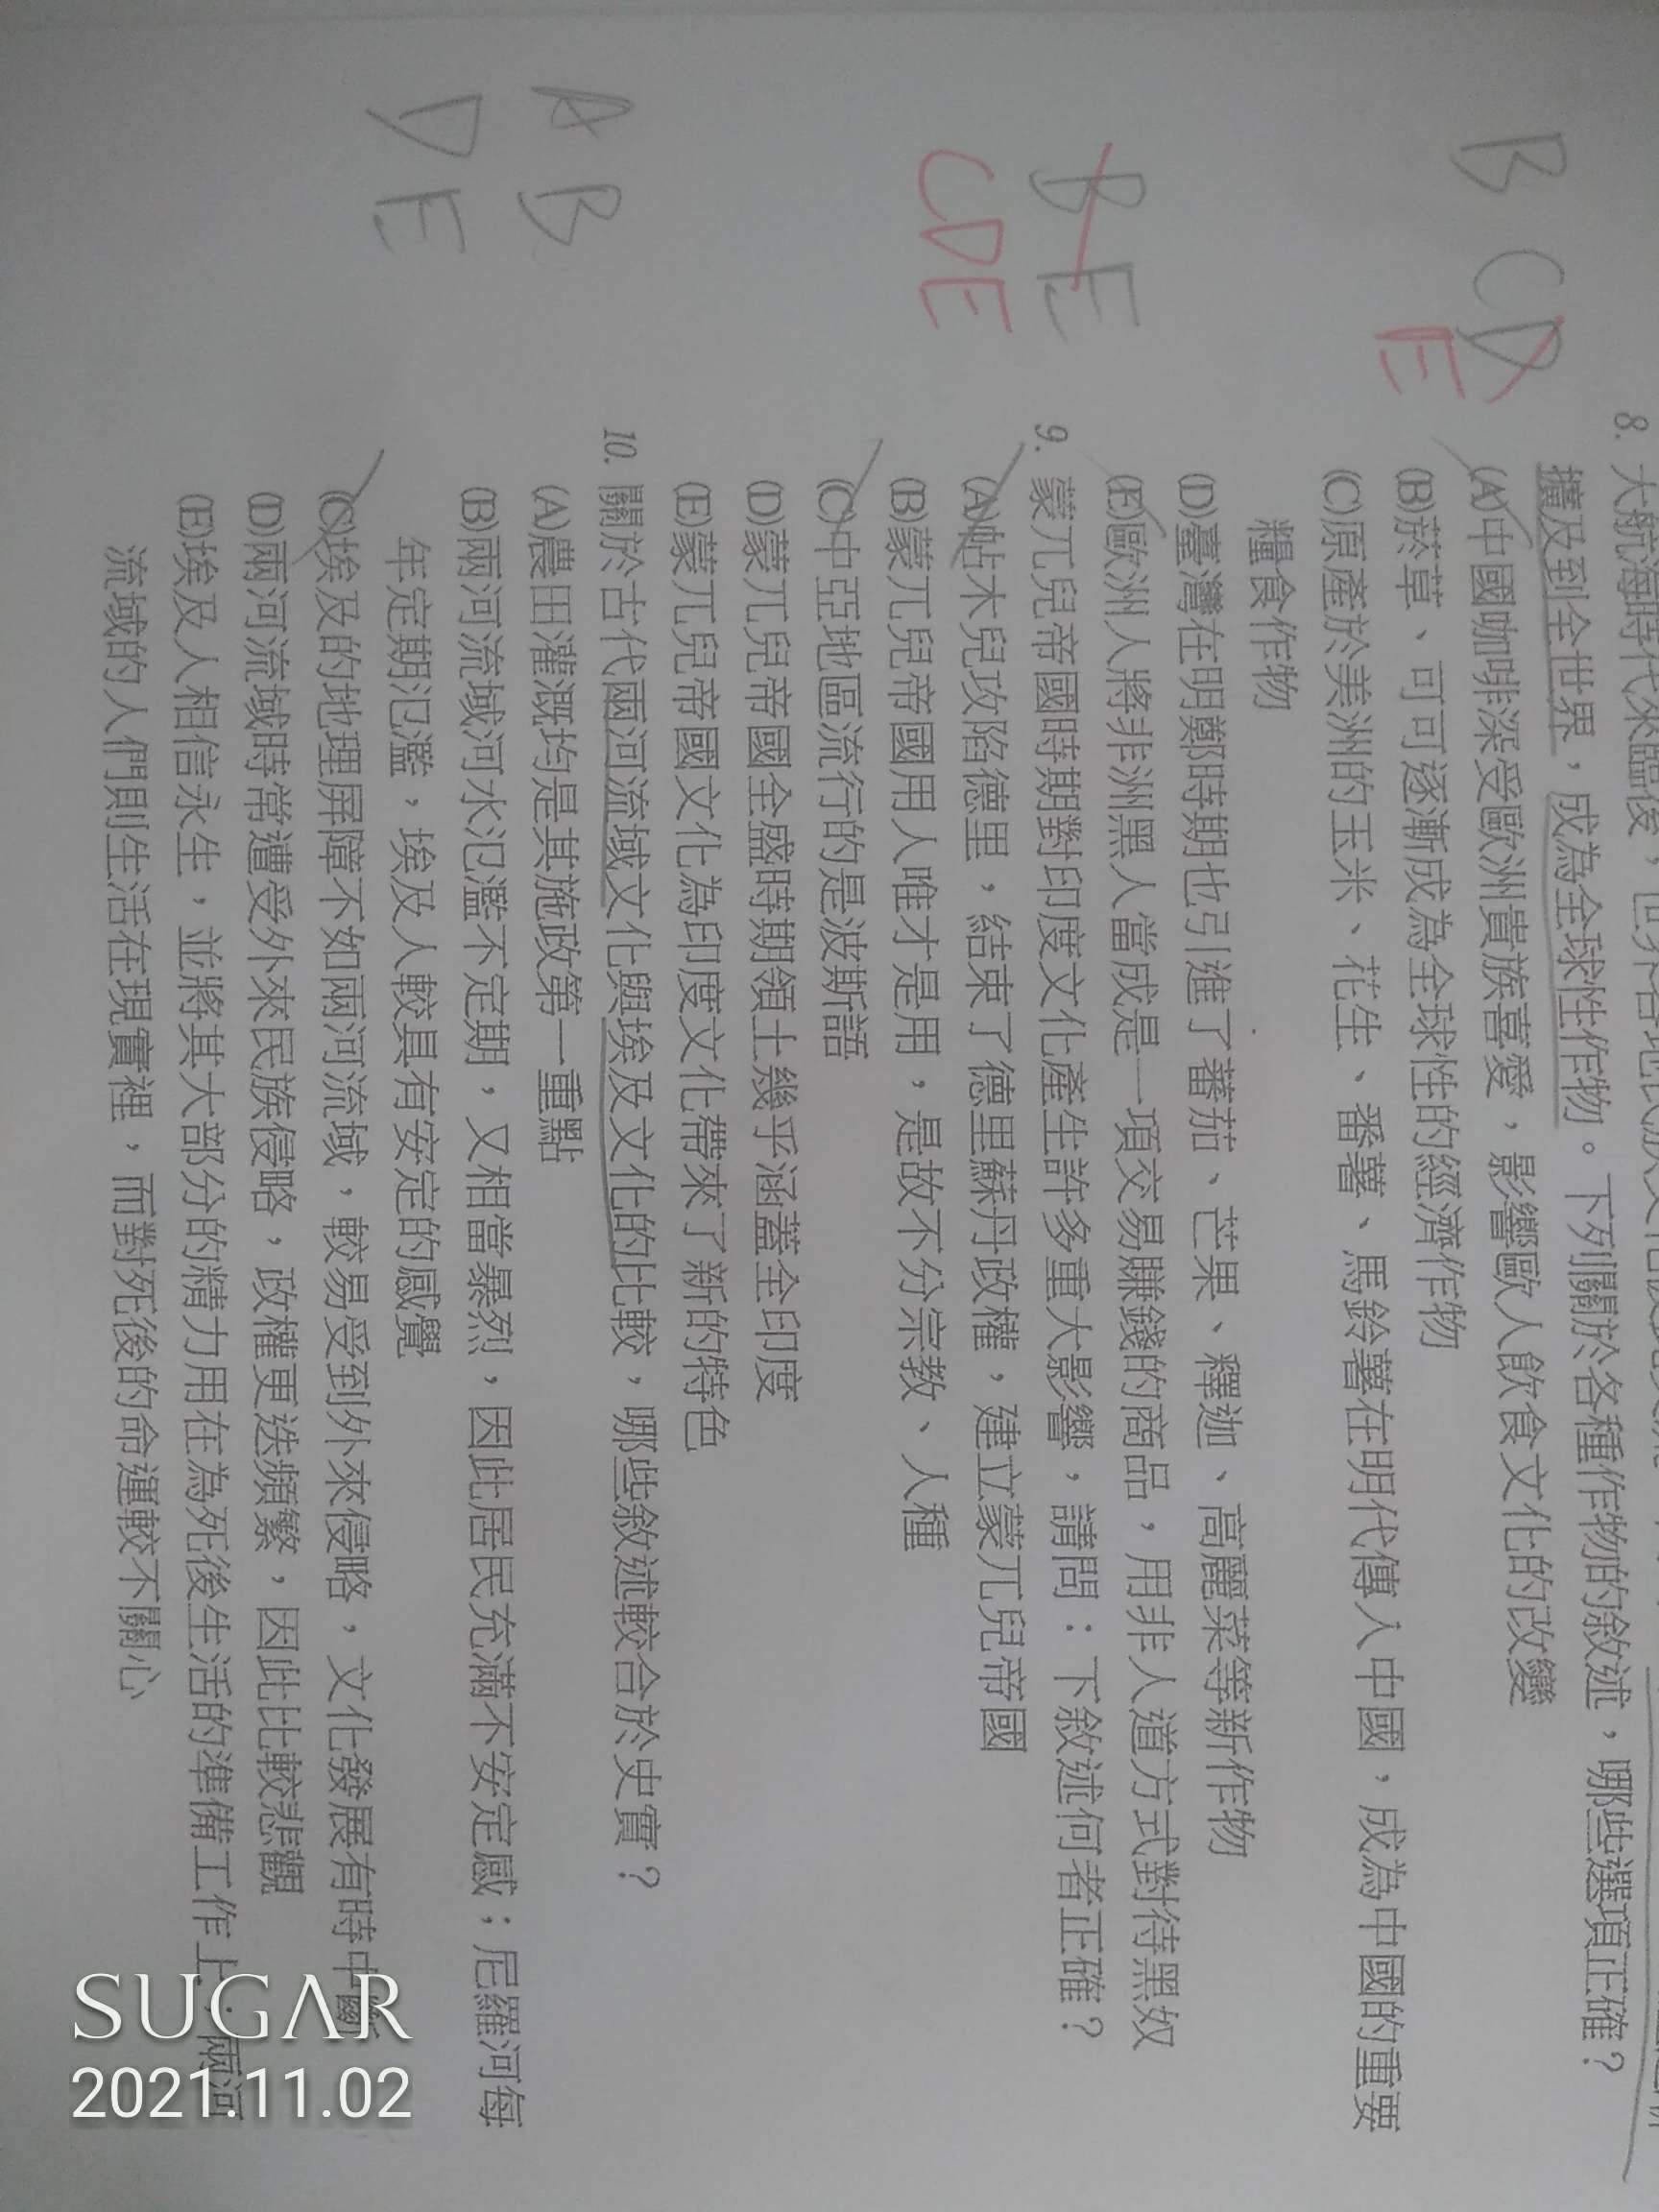 8. 大航海時代來臨後，世界各地民族
擴及到全世界，成為全球性作物。下列關於各種作物的敘述，哪些選項正確？
(A)中國咖啡深受歐洲貴族喜愛，影響歐人飲食文化的改變
(B)菸草、可可逐漸成為全球性的經濟作物
(C)原產於美洲的玉米、花生、番薯、馬鈴薯在明代傳入中國，成為中國的重要
糧食作物
(D)臺灣在明鄭時期也引進了蕃茄、芒果、釋迦、高麗菜等新作物
(E)歐洲人將非洲黑人當成是一項交易賺錢的商品，用非人道方式對待黑奴
B C D
E
9. 蒙兀兒帝國時期對印度文化產生許多重大影響，請問：下敘述何者正確？
(A)帖木兒攻陷德里，結束了德里蘇丹政權，建立蒙兀兒帝國
(B)蒙兀兒帝國用人唯才是用，是故不分宗教、人種
(C)中亞地區流行的是波斯語
(D)蒙兀兒帝國全盛時期領土幾乎涵蓋全印度
(E)蒙兀兒帝國文化為印度文化帶來了新的特色
B E
CDE
10. 關於古代兩河流域文化與埃及文化的比較，哪些敘述較合於史實？
(A)農田灌溉均是其施政第一重點
(B)兩河流域河水氾濫不定期，又相當暴烈，因此居民充滿不安定感；尼羅河每
年定期氾濫，埃及人較具有安定的感覺
(C)埃及的地理屏障不如兩河流域，較易受到外來侵略，文化發展有時中斷
(D)兩河流域時常遭受外來民族侵略，政權更迭頻繁，因此比較悲觀
(E)埃及人相信永生，並將其大部分的精力用在為死後生活的準備工作上；兩河
流域的人們則生活在現實裡，而對死後的命運較不關心
A B
D E
SUGAR
2021.11.02